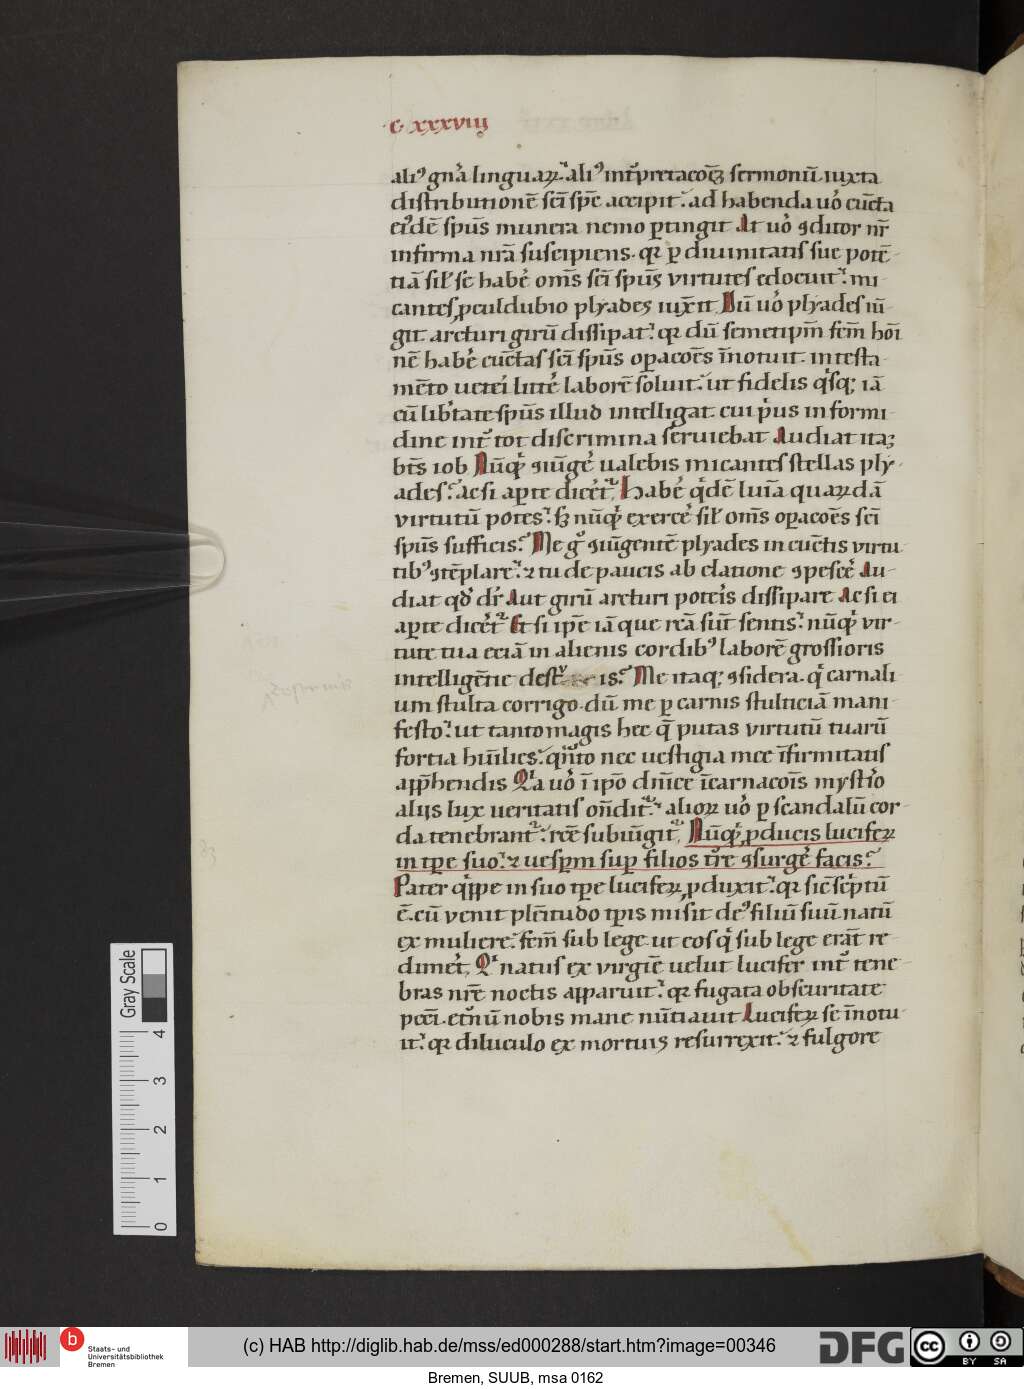 C xxxviij
aliꝰ gn̄a linguaꝝ. aliꝰ int͛pretacōēȝ sermonū. iuxta
distributionē sc̄i sp̄c accipit. ad habenda uo̍ cūcta
eiꝰdē sp̄us munera nemo ꝑtingit At uo̍ ꝯditor nr̄
infirma nr̄a suscipiens. qꝛ ꝑ diuinitatis sue potē-
tiā sil̛ se habe̛ om̄s sc̄i sp̄us virtutes edocuit. mi-
cantes ꝓculdubio plyades iuxit Dū uo̍ plyades iū-
git arcturi girū dissipat. qꝛ dū semetip̄m fc̄m hoı̄
nē habe̛ cūctas sc̄i sp̄us oꝑacōēs īnotuit. in testa-
mēto uete̛i litte̛ laborē soluit. ut fidelis qˢsqꝫ iā
cū lib͛tate sp̄us illud intelligat. cui pˢus in formi-
dine int͛ tot discrimina seruiebat Audiat itaꝫ
bt̄s iob Nūqˢ ꝯiūge̛ ualebis micantes stellas ply-
ades. ac si aꝑte dicet͛ Habe̛ qˢdē luīa quaꝝdā
virtutū potes. sꝫ nūqˢ exerce̛ sil̛ om̄s oꝑacōēs sc̄i
sp̄us sufficis. Me gͦ ꝯiūgentē plyades in cūctis virtu
tibꝰ ꝯtēplare. ⁊ tu de paucis ab elatione ꝯpesce̛ Au-
diat qd̛ dr̄ Aut girū arcturi poteı̍s dissipare Ac si ei
aꝑte dicet͛ Et si ip̄e iā que rc̄a sūt sentis. nūqˢ vir-
tute tua eciā in alienis cordibꝰ laborē grossioris
intelligētie dest͛is. Me itaqꝫ ꝯsidera. qˢ carnali
um stulta corrigo. dū me ꝑ carnis stulticiā mani-
festo. ut tanto magis hec q̄ putas virtutū tuarū
fortia huīlies. qˢnto nec uestigia mee īfirmitatis
app̄hendis Qͥa uo̍ ī ip̄o dnīce īcarnacōis myst͛io
alijs lux ueritatis on̄dit͛. alioꝝ uo̍ ꝑ scandalū cor-
da tenebrant͛. rc̄e subiūgit͛ Nūqˢ ꝓducis luciferꝝ
in tꝑe suo. ⁊ uesꝑm suꝑ filios t͛re ꝯsurge̛ facis.
Pater qˢppe in suo tꝑe luciferꝝ ꝓduxit. qꝛ sic̄ scˢptū
ē. cū venit plēitudo tꝑis misit deꝰ filiū suū natū
ex muliere. fc̄m sub lege ut eos qˢ sub lege erāt re-
dime̛t. Qͥ natus ex virgīe uelut lucifer int͛ tene-
bras nr̄e noctis apparuit. qꝛ fugata obscuritate
pcc̄i. et͛nū nobis mane nūtiauit Luciferꝝ se īnotu-
it. qꝛ diluculo ex mortuis resurrexit. ⁊ fulgore
Gray Scale
4
3
2
1
0
b
Staats- und
Universitätsbibliothek
Bremen
(c) HAB http://diglib.hab.de/mss/ed000288/start.htm?image=00346
DFG
cc
BY SA
Bremen, SUUB, msa 0162